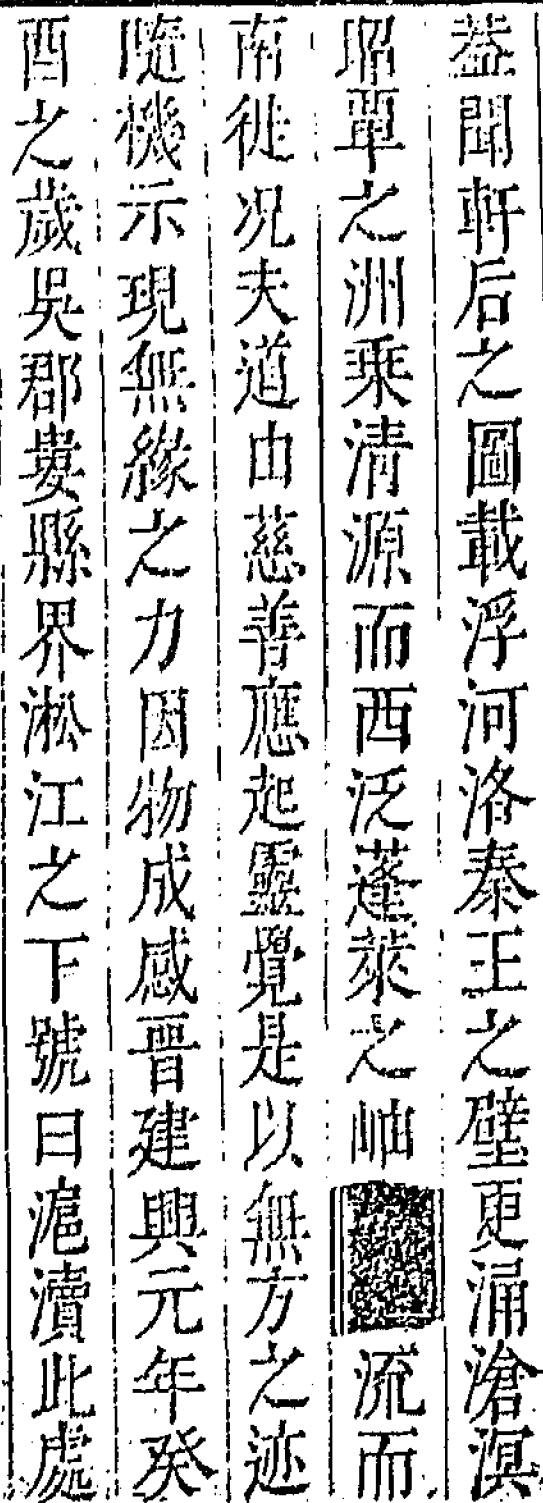 葢聞軒后之圖載浮河洛秦王之璧更涌滄溟
昭單之洲乗清源而西泛蓬萊之岫流而
南徙况夫道由慈善應起靈覺是以無方之迹
隨機示現無緣之力因物成感晋建興元年癸
酉之歲吳郡婁縣界淞江之下號曰滬瀆此處